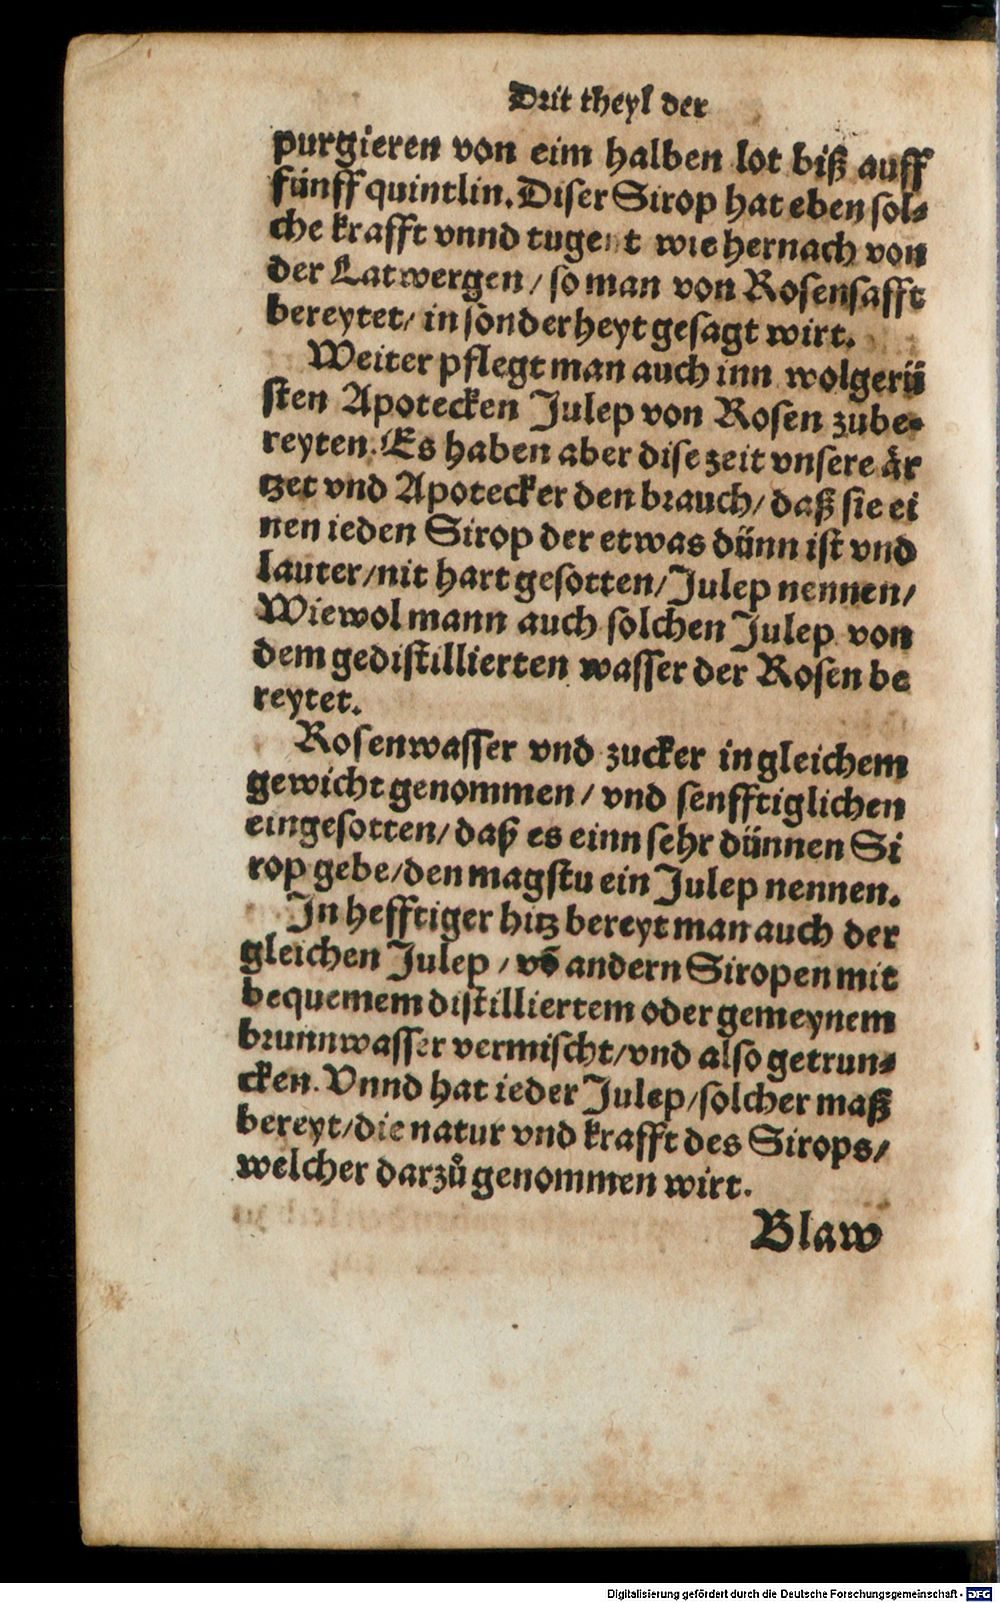 Drit theyl der
purgieren von eim halben lot biß auff
fünff quintlin. Diser Sirop hat eben sol⸗
che krafft vnnd tugent wie hernach von
der Latwergen / so man von Rosensafft
bereytet / in sonderheyt gesagt wirt.
Weiter pflegt man auch inn wolgerü
sten Apotecken Julep von Rosen zube⸗
reyten. Es haben aber dise zeit vnsere är
tzet vnd Apotecker den brauch / daß sie ei
nen ieden Sirop der etwas dünn ist vnd
lauter / nit hart gesotten / Julep nennen /
Wiewol mann auch solchen Julep von
dem gedistillierten wasser der Rosen be
reytet.
Rosenwasser vnd zucker in gleichem
gewicht genommen / vnd senfftiglichen
eingesotten / daß es einn sehr dünnen Si
rop gebe / den magstu ein Julep nennen.
In hefftiger hitz bereyt man auch der
gleichen Julep / võ andern Siropen mit
bequemem distilliertem oder gemeynem
brunnwasser vermischt / vnd also getrun⸗
cken. Vnnd hat ieder Julep / solcher maß
bereyt / die natur vnd krafft des Sirops /
welcher darzů genommen wirt.
Blaw
Digitalisierung gefördert durch die Deutsche Forschungsgemeinschaft - DFG